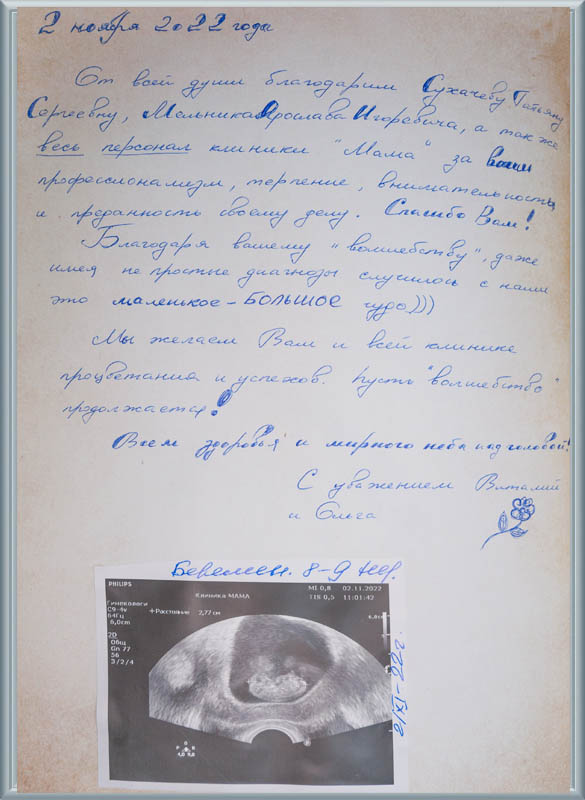 2 ноября 2022 года
От всей души благодарим Сухачеву Татьяну
Сергеевну, Мельника Ярослава Игоревича, а также
весь персонал клиники "Мама" за ваш
профессионализм, терпение, внимательность
и преданность своему делу. Спасибо Вам!
Благодаря вашему "волшебству", даже
имея не простые диагнозы случилось с нами
это маленькое-БОЛЬШОЕ чудо)))
Мы желаем Вам и всей клинике
процветания и успехов. Пусть "волшебство"
продолжается!
Всем здоровья и мирного неба над головой!
С уважением Виталий
и Ольга
Беремен. 8-9 нед.
PHILIPS
Клиника МАМА
MI 0,8 02.11.2022
TIS 0,5 11:01:42
Гинекологи
C9-4v
64Гц
6,0cm
+Расстояние 2,77см
6,0см
2D
Общ
Gn 77
56
3/2/4
2/XI-22г.